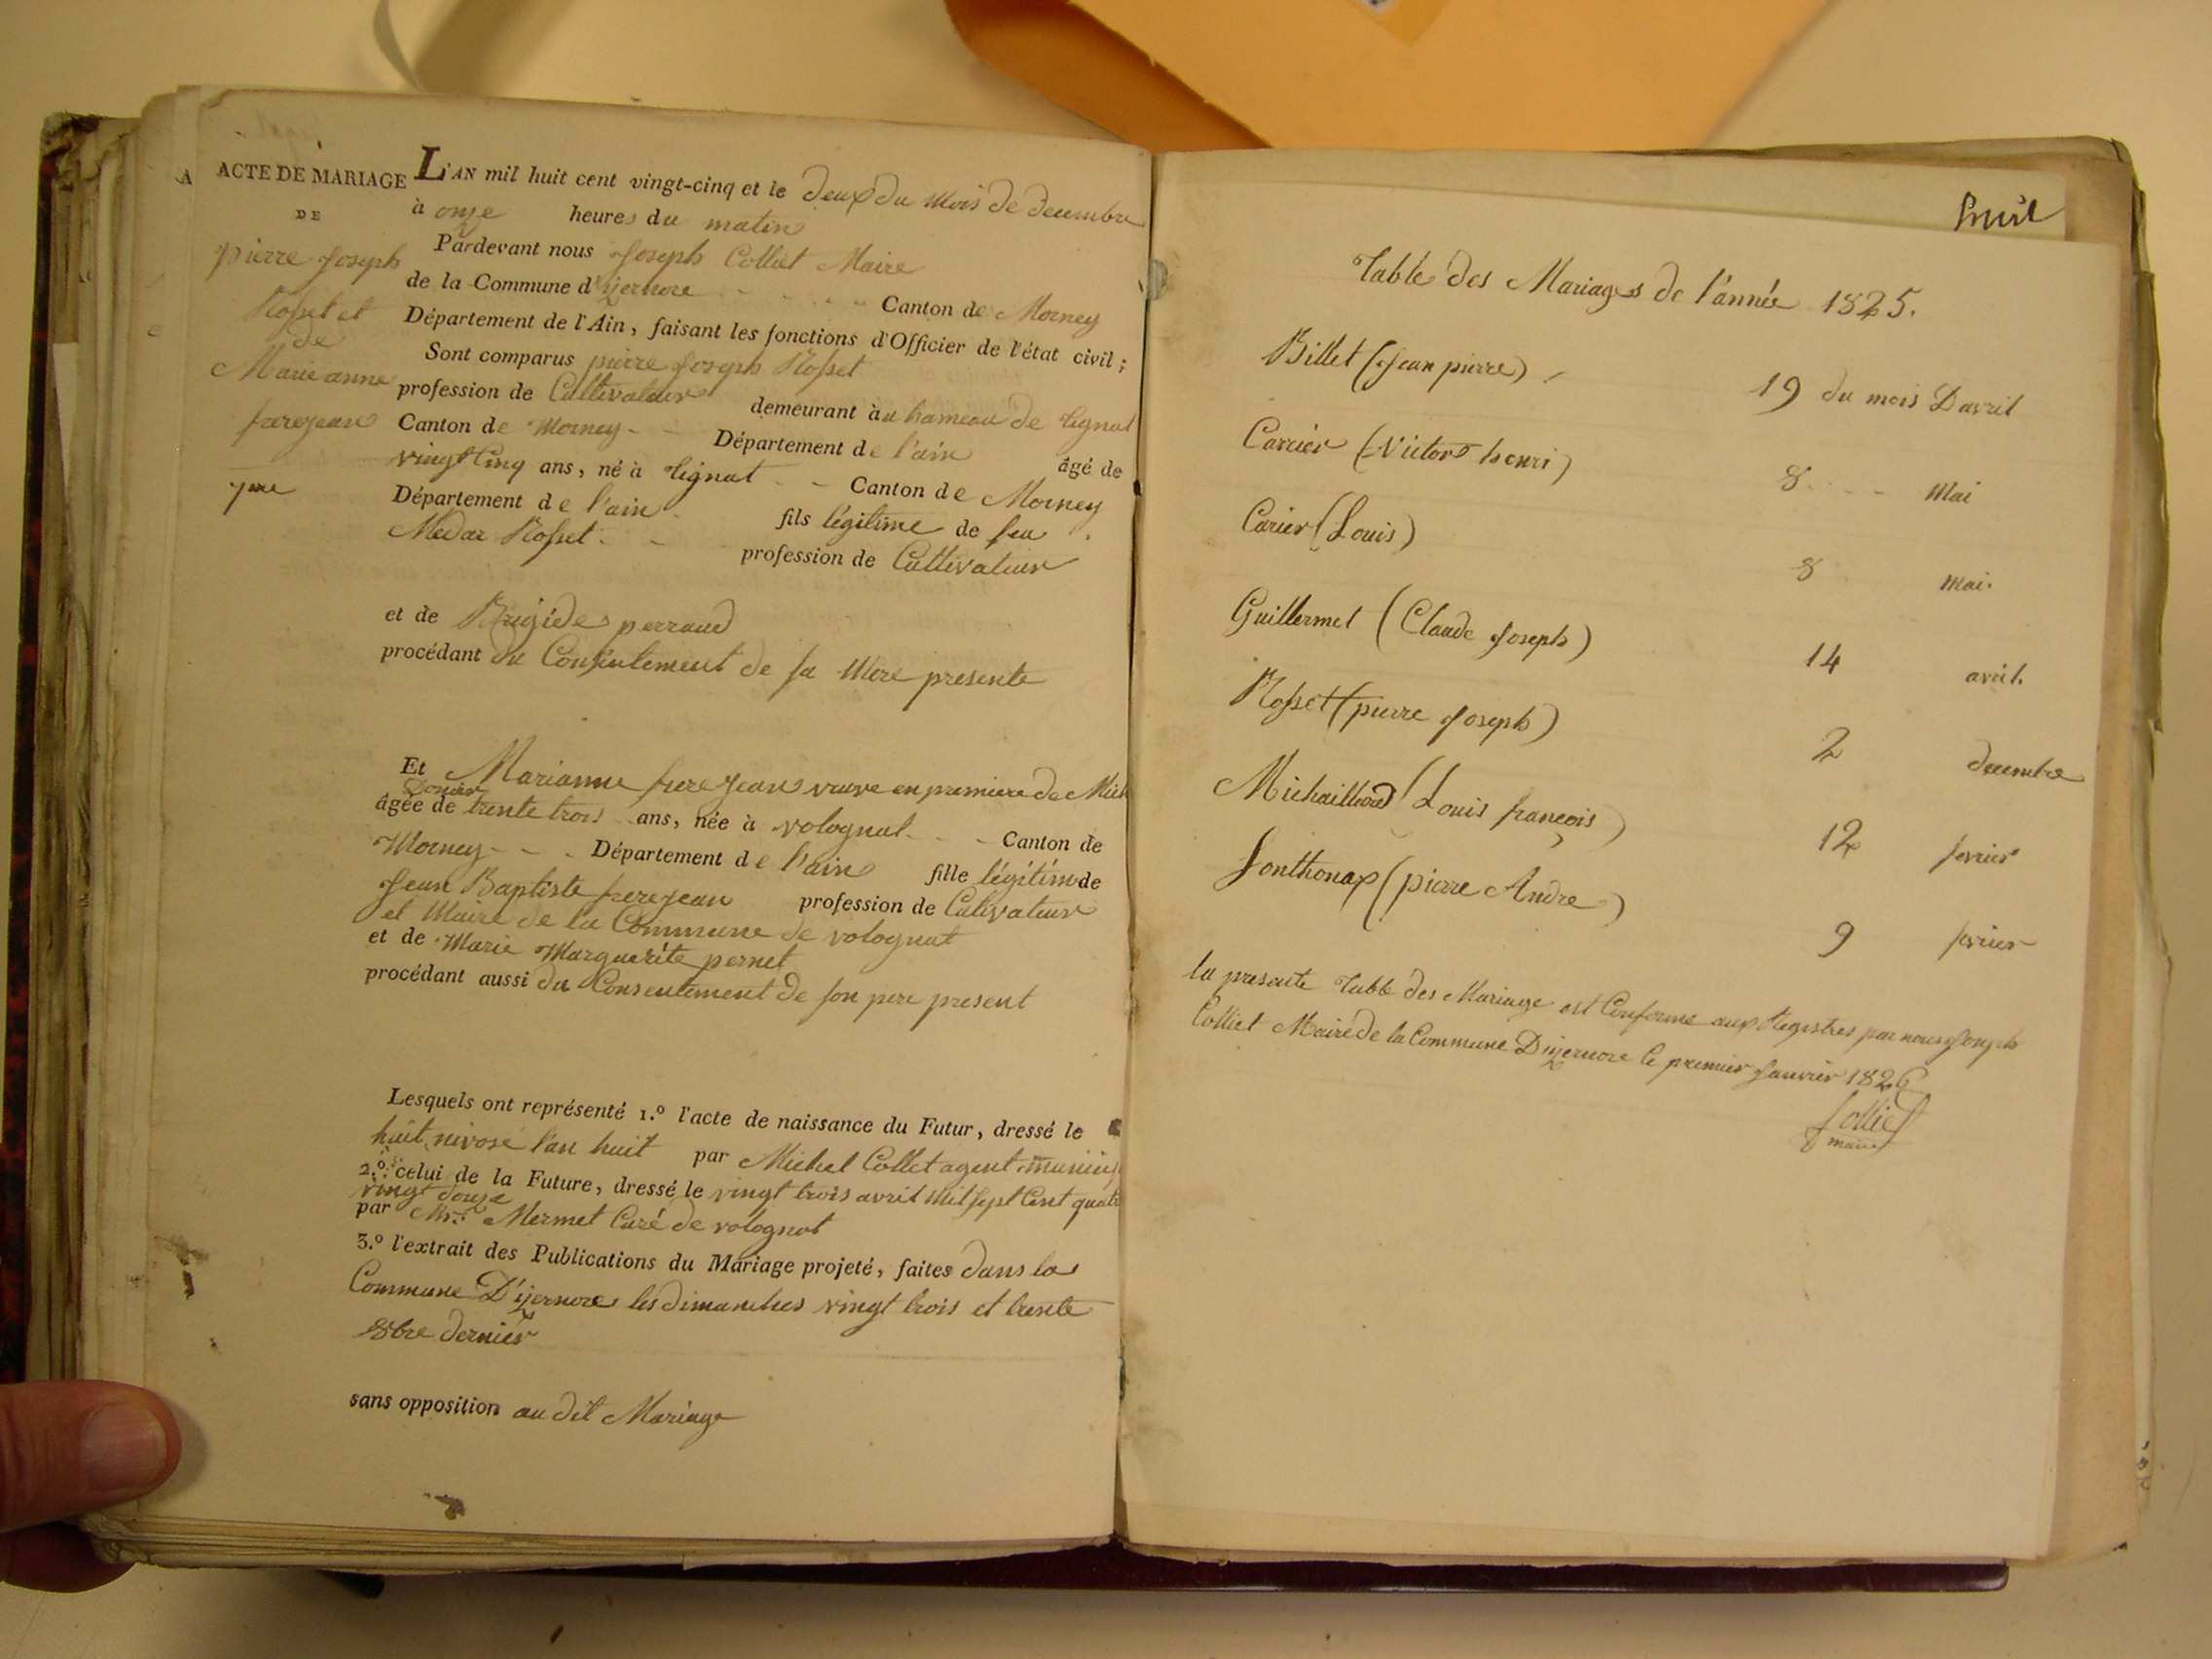 ACTE DE MARIAGE
DE
pierre Joseph
Rosset et
de
Marie anne
frerejean
7me
L'AN mil huit cent vingt-cinq et le deux du Mois de decembre
à onze heures du matin
Pardevant nous Joseph Colliet Maire
de la Commune d'izernore Canton de Morney
Département de l'Ain, faisant les fonctions d'Officier de l'état civil;
Sont comparus pierre Joseph Rosset
profession de Cultivateur demeurant au hameau de tignat
Canton de Morney Département de l'ain âgé de
vingt Cinq ans, né à tignat Canton de Morney
Département de l'ain fils légitime de feu
Medar Rosset profession de Cultivateur
et de Brigide perraud
procédant du Consentement de sa Mere presente
Et Marianne frere Jean veuve en premiere de Mich
âgée de trente trois ans, née à volognat Canton de
Morney Département de l'ain fille légitime de
Jean Baptiste frerejean profession de Cultivateur
et Maire de la Commune de volognat
et de Marie Marguerite pernet
procédant aussi du Consentement de son pere present
Lesquels ont représenté 1.º l'acte de naissance du Futur, dressé le
huit nivose l'an huit par Michel Collet agent municip
2.º celui de la Future, dressé le vingt trois avril mil sept Cent quatr
vingt douze
par Mr. Mermet Curé de volognat
3.º l'extrait des Publications du Mariage projeté, faites dans la
Commune D'izernore les dimanches vingt trois et trente
8bre dernier
sans opposition au dit Mariage
Table des Mariages de l'année 1825.
Billet (Jean pierre) 19 du mois Davril
Carrier (Victor henri) 8 Mai
Carier (Louis) 8 Mai.
Guillermet (Claude Joseph) 14 avril.
Rosset (pierre Joseph) 2 decembre
Michaillard (Louis françois) 12 fevrier
Sonthonax (pierre Andre) 9 fevrier
la presente Table des Mariage est Conforme aux Registres par nous Joseph
Colliet Maire de la Commune Dizernore le premier Janvier 1826
Colliet
maire